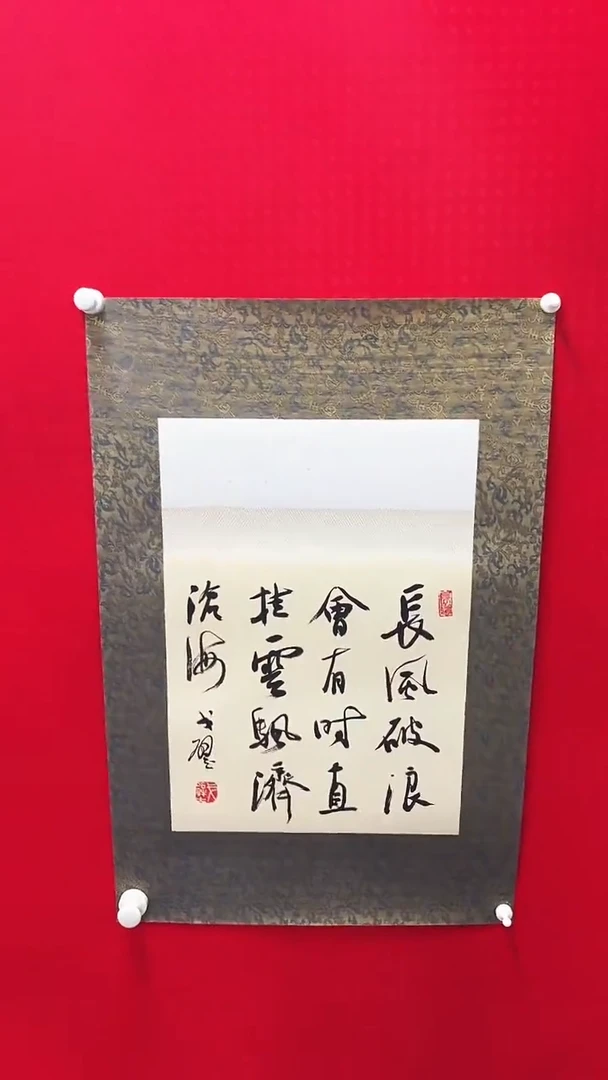 長風破浪
會有时直
挂雲颿濟
滄海